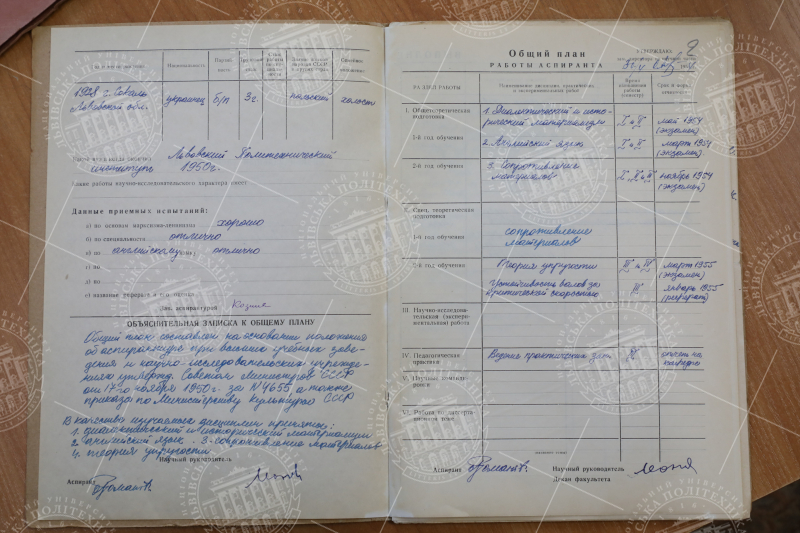 Национальность
1928 г. Сокаль
Львовской обл.
украинец
б/п
3 г.
польский
холост
Львовский Политехнический
институт 1950 г.
Какие работы научно-исследовательского характера имеет
Данные приемных испытаний:
а) по основам марксизма-ленинизма хорошо
б) по специальности отлично
в) по английскому отлично
г) по
д) по
е) название реферата и его оценка
Зав. аспирантурой
ОБЪЯСНИТЕЛЬНАЯ ЗАПИСКА К ОБЩЕМУ ПЛАНУ
Общий план составлен на основании положения
об аспирантуре при высших учебных заве-
дениях и научно-исследовательских учрежде-
ниях утвержд. Советом Министров СССР
от 17 ноября 1950 г. за № 4655 а также
приказа по Министерству Культуры СССР
В качестве изучаемых дисциплин приняты:
1. диалектический и исторический материализм
2. английский язык. 3. сопротивление материалов
4. теория упругости
Научный руководитель
Аспирант
2
Общий план
РАБОТЫ АСПИРАНТА
УТВЕРЖДАЮ
РАЗДЕЛ РАБОТЫ
Наименование дисциплин,
Время
выполнения
работы
Срок и форма
отчетности
I. Общетеоретическая
подготовка
1. Диалектический и исто-
рический материализм
I и II
май 1954
(экзамен)
1-й год обучения
2. Английский язык
I и II
март 1954
(экзамен)
2-й год обучения
3. Сопротивление
материалов
I, II и III
ноябрь 1954
(экзамен)
II. Спец. теоретическая
подготовка
1-й год обучения
сопротивление
материалов
2-й год обучения
Теория упругости
III и IV
март 1955
(экзамен)
Устойчивость валов за
критической скоростью
III
январь 1955
(реферат)
III. Научно-исследова-
тельская (экспери-
ментальная) работа
IV. Педагогическая
практика
Ведение практических зан.
IV
отчет на
кафедре
V. Научные команди-
ровки
VI. Работа над диссертац.
Аспирант
Научный руководитель
Декан факультета